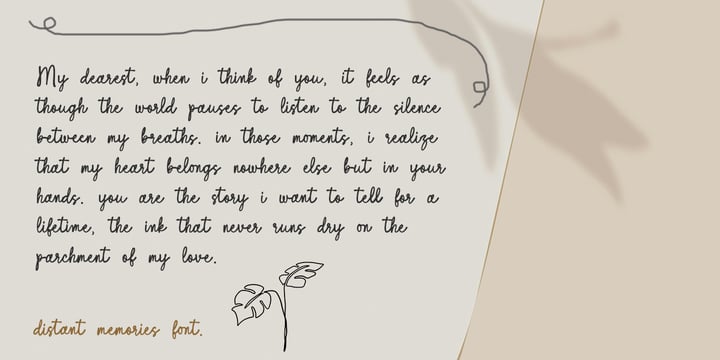 My dearest, when i think of you, it feels as
though the world pauses to listen to the silence
between my breaths. in those moments, i realize
that my heart belongs nowhere else but in your
hands. you are the story i want to tell for a
lifetime, the ink that never runs dry on the
parchment of my love.
distant memories font.